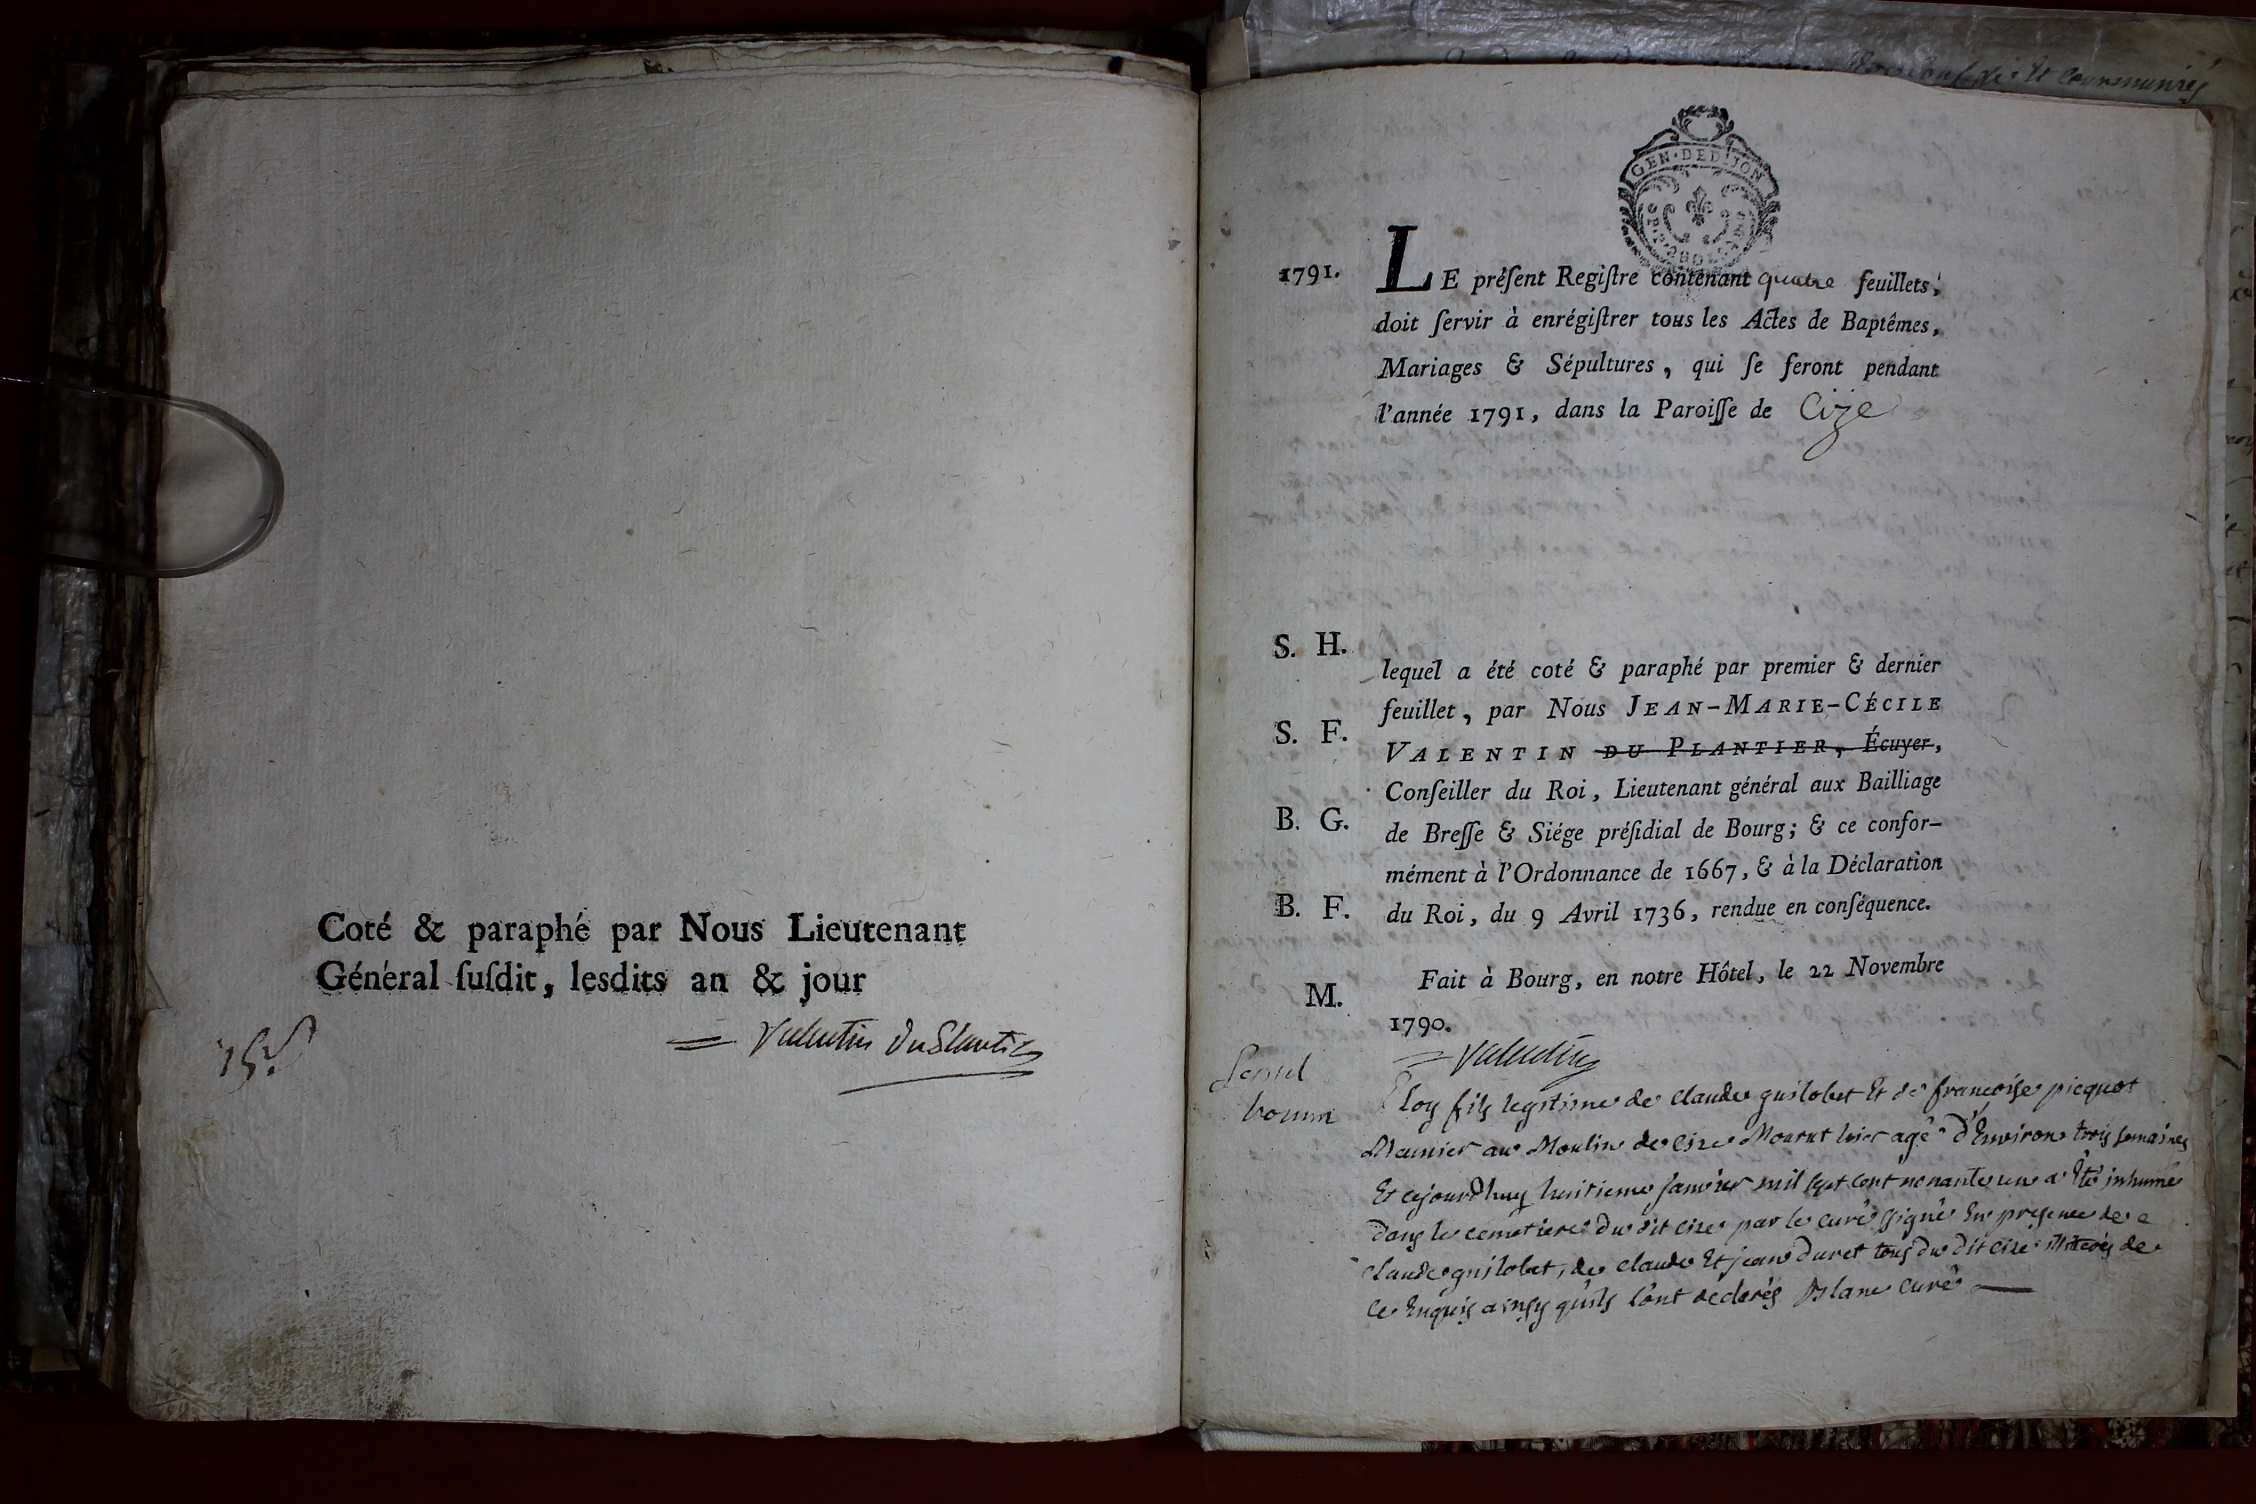 Coté & paraphé par Nous Lieutenant
Général ſuſdit, lesdits an & jour
Valentin DuPlantier
GEN·DE DIJON
1791.
LE préſent Regiſtre contenant quatre feuillets,
doit ſervir à enrégiſtrer tous les Actes de Baptêmes,
Mariages & Sépultures, qui ſe feront pendant
l'année 1791, dans la Paroiſſe de Cize
S. H.
lequel a été coté & paraphé par premier & dernier
feuillet, par Nous JEAN-MARIE-CÉCILE
S. F.
VALENTIN DU PLANTIER, Écuyer,
Conſeiller du Roi, Lieutenant général aux Bailliage
B. G.
de Breſſe & Siége préſidial de Bourg; & ce confor-
mément à l'Ordonnance de 1667, & à la Déclaration
B. F.
du Roi, du 9 Avril 1736, rendue en conſéquence.
Fait à Bourg, en notre Hôtel, le 22 Novembre
M.
1790.
Valentin
Eloy fils legitime de claude guilobet Et de françoise picquot
Meunier au Moulin de Cize Mourut hier agé d'Environ trois semaines
Et cejourdhuy huitieme janvier mil sept cent nonante un a Eté inhumé
dans le cemetiere du dit Cize par le curé signé En presence de
claude guilobet, de claude Et jean duret tous du dit Cize illiterés de
ce Enquis ainsy quils l'ont declarés Blanc curé